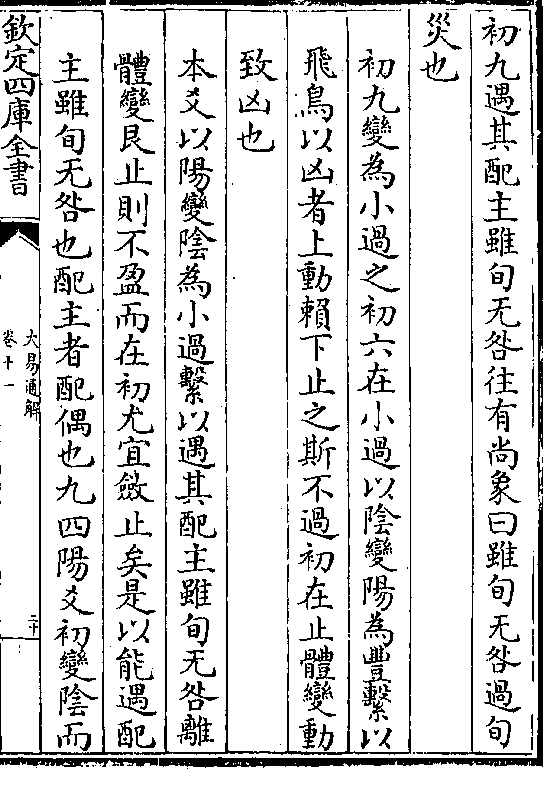 初九遇其配主雖旬无咎往有尚象曰雖旬无咎過旬
災也
初九變為小過之初六在小過以陰變陽為豐繫以
飛鳥以凶者上動賴下止之斯不過初在止體變動
致凶也
本爻以陽變陰為小過繫以遇其配主雖旬无咎離
體變艮止則不盈而在初尤宜斂止矣是以能遇配
主雖旬无咎也配主者配偶也九四陽爻初變陰而
欽定四庫全書
大易通解
卷十一
二十